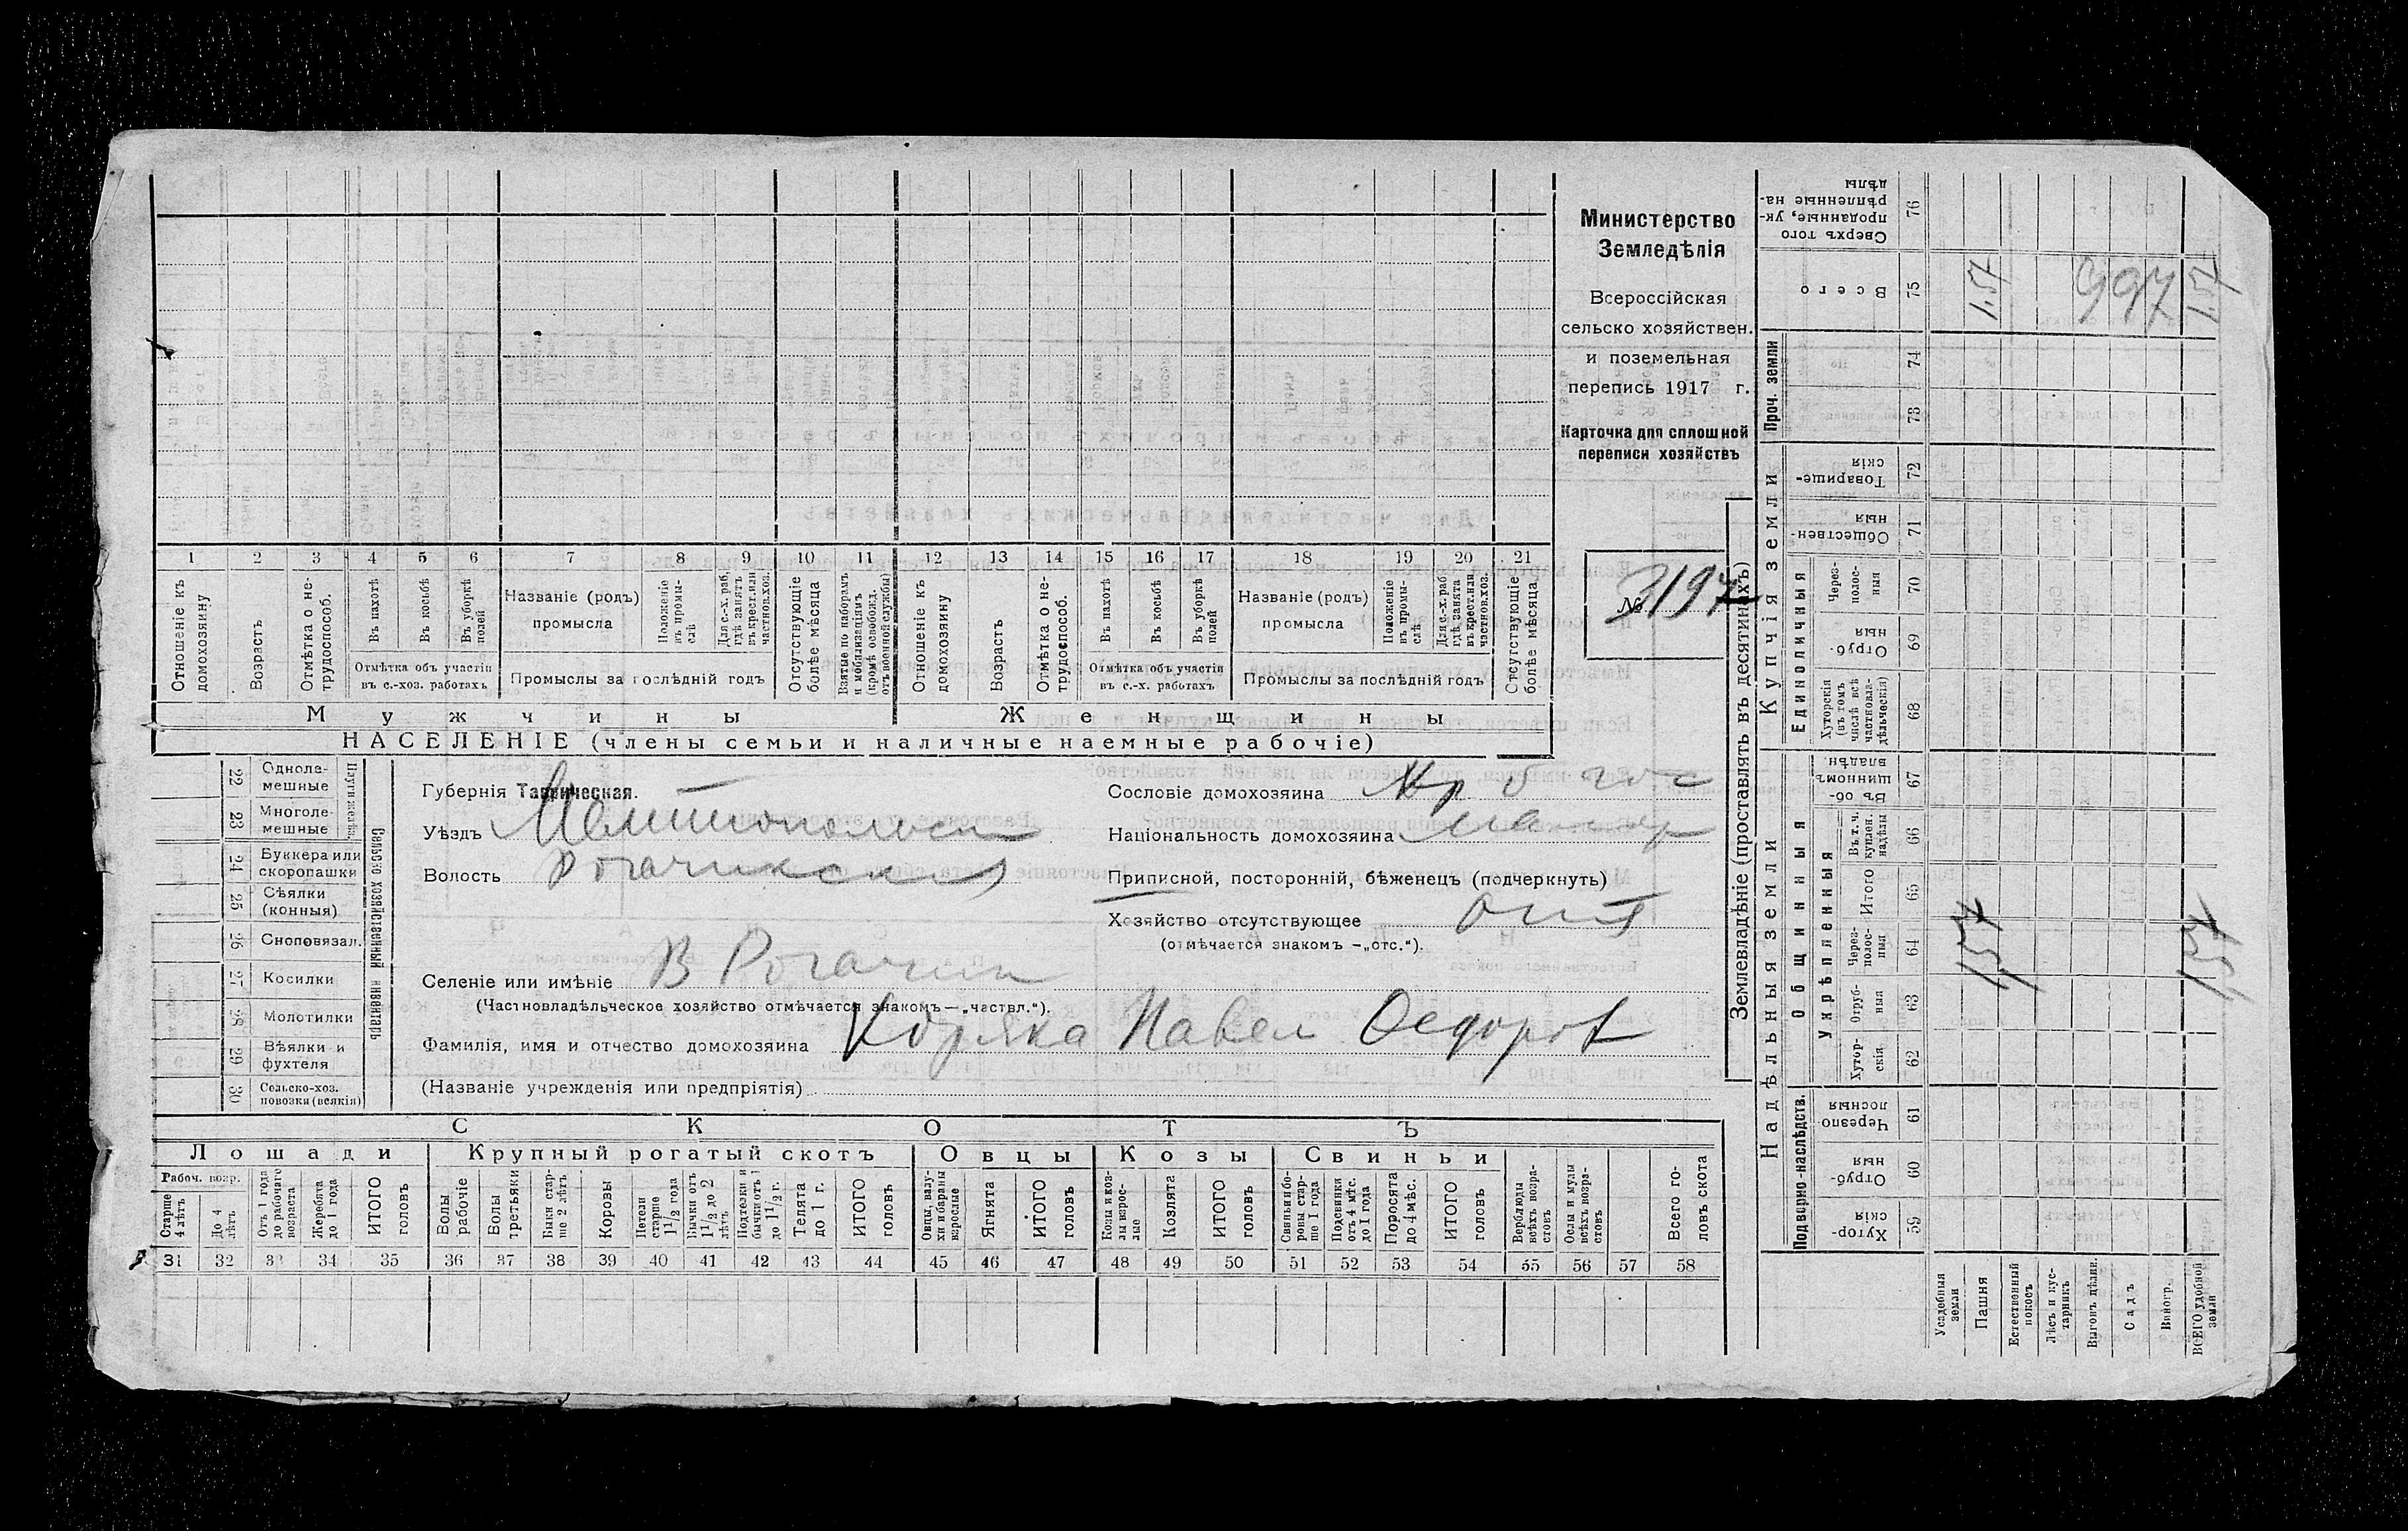 1 2 3 4 5 6 7 8 9 10 11 12 13 14 15 16 17 18 19 20 21
Отношеніе къ домохозяину
Возрастъ
Отмѣтка о не-
трудоспособ.
Въ пахотѣ
Въ косьбѣ
Въ уборкѣ
полей
Отмѣтка объ участіи
въ с.-хоз. работахъ
Названіе (родъ)
промысла
Положеніе
въ промы-
слѣ
Для с.-х. раб.
гдѣ занятъ
въ крест. или
частнов. хоз.
Промыслы за послѣдній годъ
Отсутствующіе
болѣе мѣсяца
Взятые по наборамъ
и мобилизаціямъ
(кромѣ освобожд.
отъ военной службы)
Отношеніе къ
домохозяину
Возрастъ
Отмѣтка о не-
трудоспособ.
Въ пахотѣ
Въ косьбѣ
Въ уборкѣ
полей
Отмѣтка объ участіи
въ с.-х. работахъ
Названіе (родъ)
промысла
Положеніе
въ промы-
слѣ
Для с.-х. раб.
гдѣ занята
въ крест. или
частнов. хоз.
Промыслы за послѣдній годъ
Отсутствующіе
болѣе мѣсяца
Мужчины Женщины
НАСЕЛЕНІЕ (члены семьи и наличные наемные рабочіе)
Министерство
Земледѣлія
Всероссійская
сельско хозяйствен.
и поземельная
перепись 1917 г.
Карточка для сплошной
переписи хозяйствъ
№ 3197
22 Однолемешные
23 Многолемешные
Плуги желѣзн.
24 Буккера или
скоропашки
25 Сѣялки
(конныя)
26 Сноповязал.
27 Косилки
28 Молотилки
29 Вѣялки и
фухтеля
30 Сельско-хоз.
повозки (всякія)
Сельско хозяйственный инвентарь
Губернія Таврическая.
Уѣздъ Мелитопольск
Волость Рогачикская
Селеніе или имѣніе В Рогачик
(Частновладѣльческое хозяйство отмѣчается знакомъ—„частвл.“).
Фамилія, имя и отчество домохозяина Коряка Павел Федоров
(Названіе учрежденія или предпріятія)
Сословіе домохозяина
Національность домохозяина
Приписной, посторонній, бѣженецъ (подчеркнуть)
Хозяйство отсутствующее
(отмѣчается знакомъ —„отс.“).
СКОТЪ
Лошади Крупный рогатый скотъ Овцы Козы Свиньи
Рабоч. возр.
Старше
4 лѣтъ
До 4
лѣтъ
Отъ 1 года
до рабочаго
возраста
Жеребята
до 1 года
ИТОГО
головъ
Волы
рабочіе
Волы
третьяки
Быки стар-
ше 2 лѣтъ
Коровы
Нетели
старше
1 1/2 года
Бычки отъ
1 1/2 до 2
лѣтъ
Подтелки и
бычки отъ 1
до 1 1/2 г.
Телята
до 1 г.
ИТОГО
головъ
Овцы, валу-
хи и бараны
взрослые
Ягнята
ИТОГО
головъ
Козы и коз-
лы взрос-
лые
Козлята
ИТОГО
головъ
Свиньи и бо-
ровы стар-
ше 1 года
Подсвинки
отъ 4 мѣс.
до 1 года
Поросята
до 4 мѣс.
ИТОГО
головъ
Верблюды
всѣхъ возра-
стовъ
Ослы и мулы
всѣхъ возра-
стовъ
Всего го-
ловъ скота
31 32 33 34 35 36 37 38 39 40 41 42 43 44 45 46 47 48 49 50 51 52 53 54 55 56 57 58
Землевладѣніе (проставлять въ десятинахъ)
Надѣльныя земли
Купчія земли
Проч. земли
Подворно-наслѣдств.
Общинныя
Укрѣпленныя
Единоличныя
Хутор-
скія
59
Отруб-
ныя
60
Черезпо-
лосныя
61
Хутор-
скія
62
Отруб-
ныя
63
Через-
полос-
ныя
64
Итого
65
Въ т. ч.
куплен.
надѣлы
66
Въ об-
щинномъ
владѣн.
67
Хуторскія
(въ томъ
числѣ всѣ
частновла-
дѣльческія)
68
Отруб-
ныя
69
Через-
полос-
ныя
70
Обществен-
ныя
71
Товарище-
скія
72
73
74
Всего
75
Сверхъ того
проданные, ук-
рѣпленные на-
дѣлы
76
Усадебныя
земли
Пашня
Естественный
покосъ
Лѣсъ и кус-
тарникъ
Выгонъ цѣлин.
Садъ
Виногр.
ВСЕГО удобной
земли
157 157
157 997 157